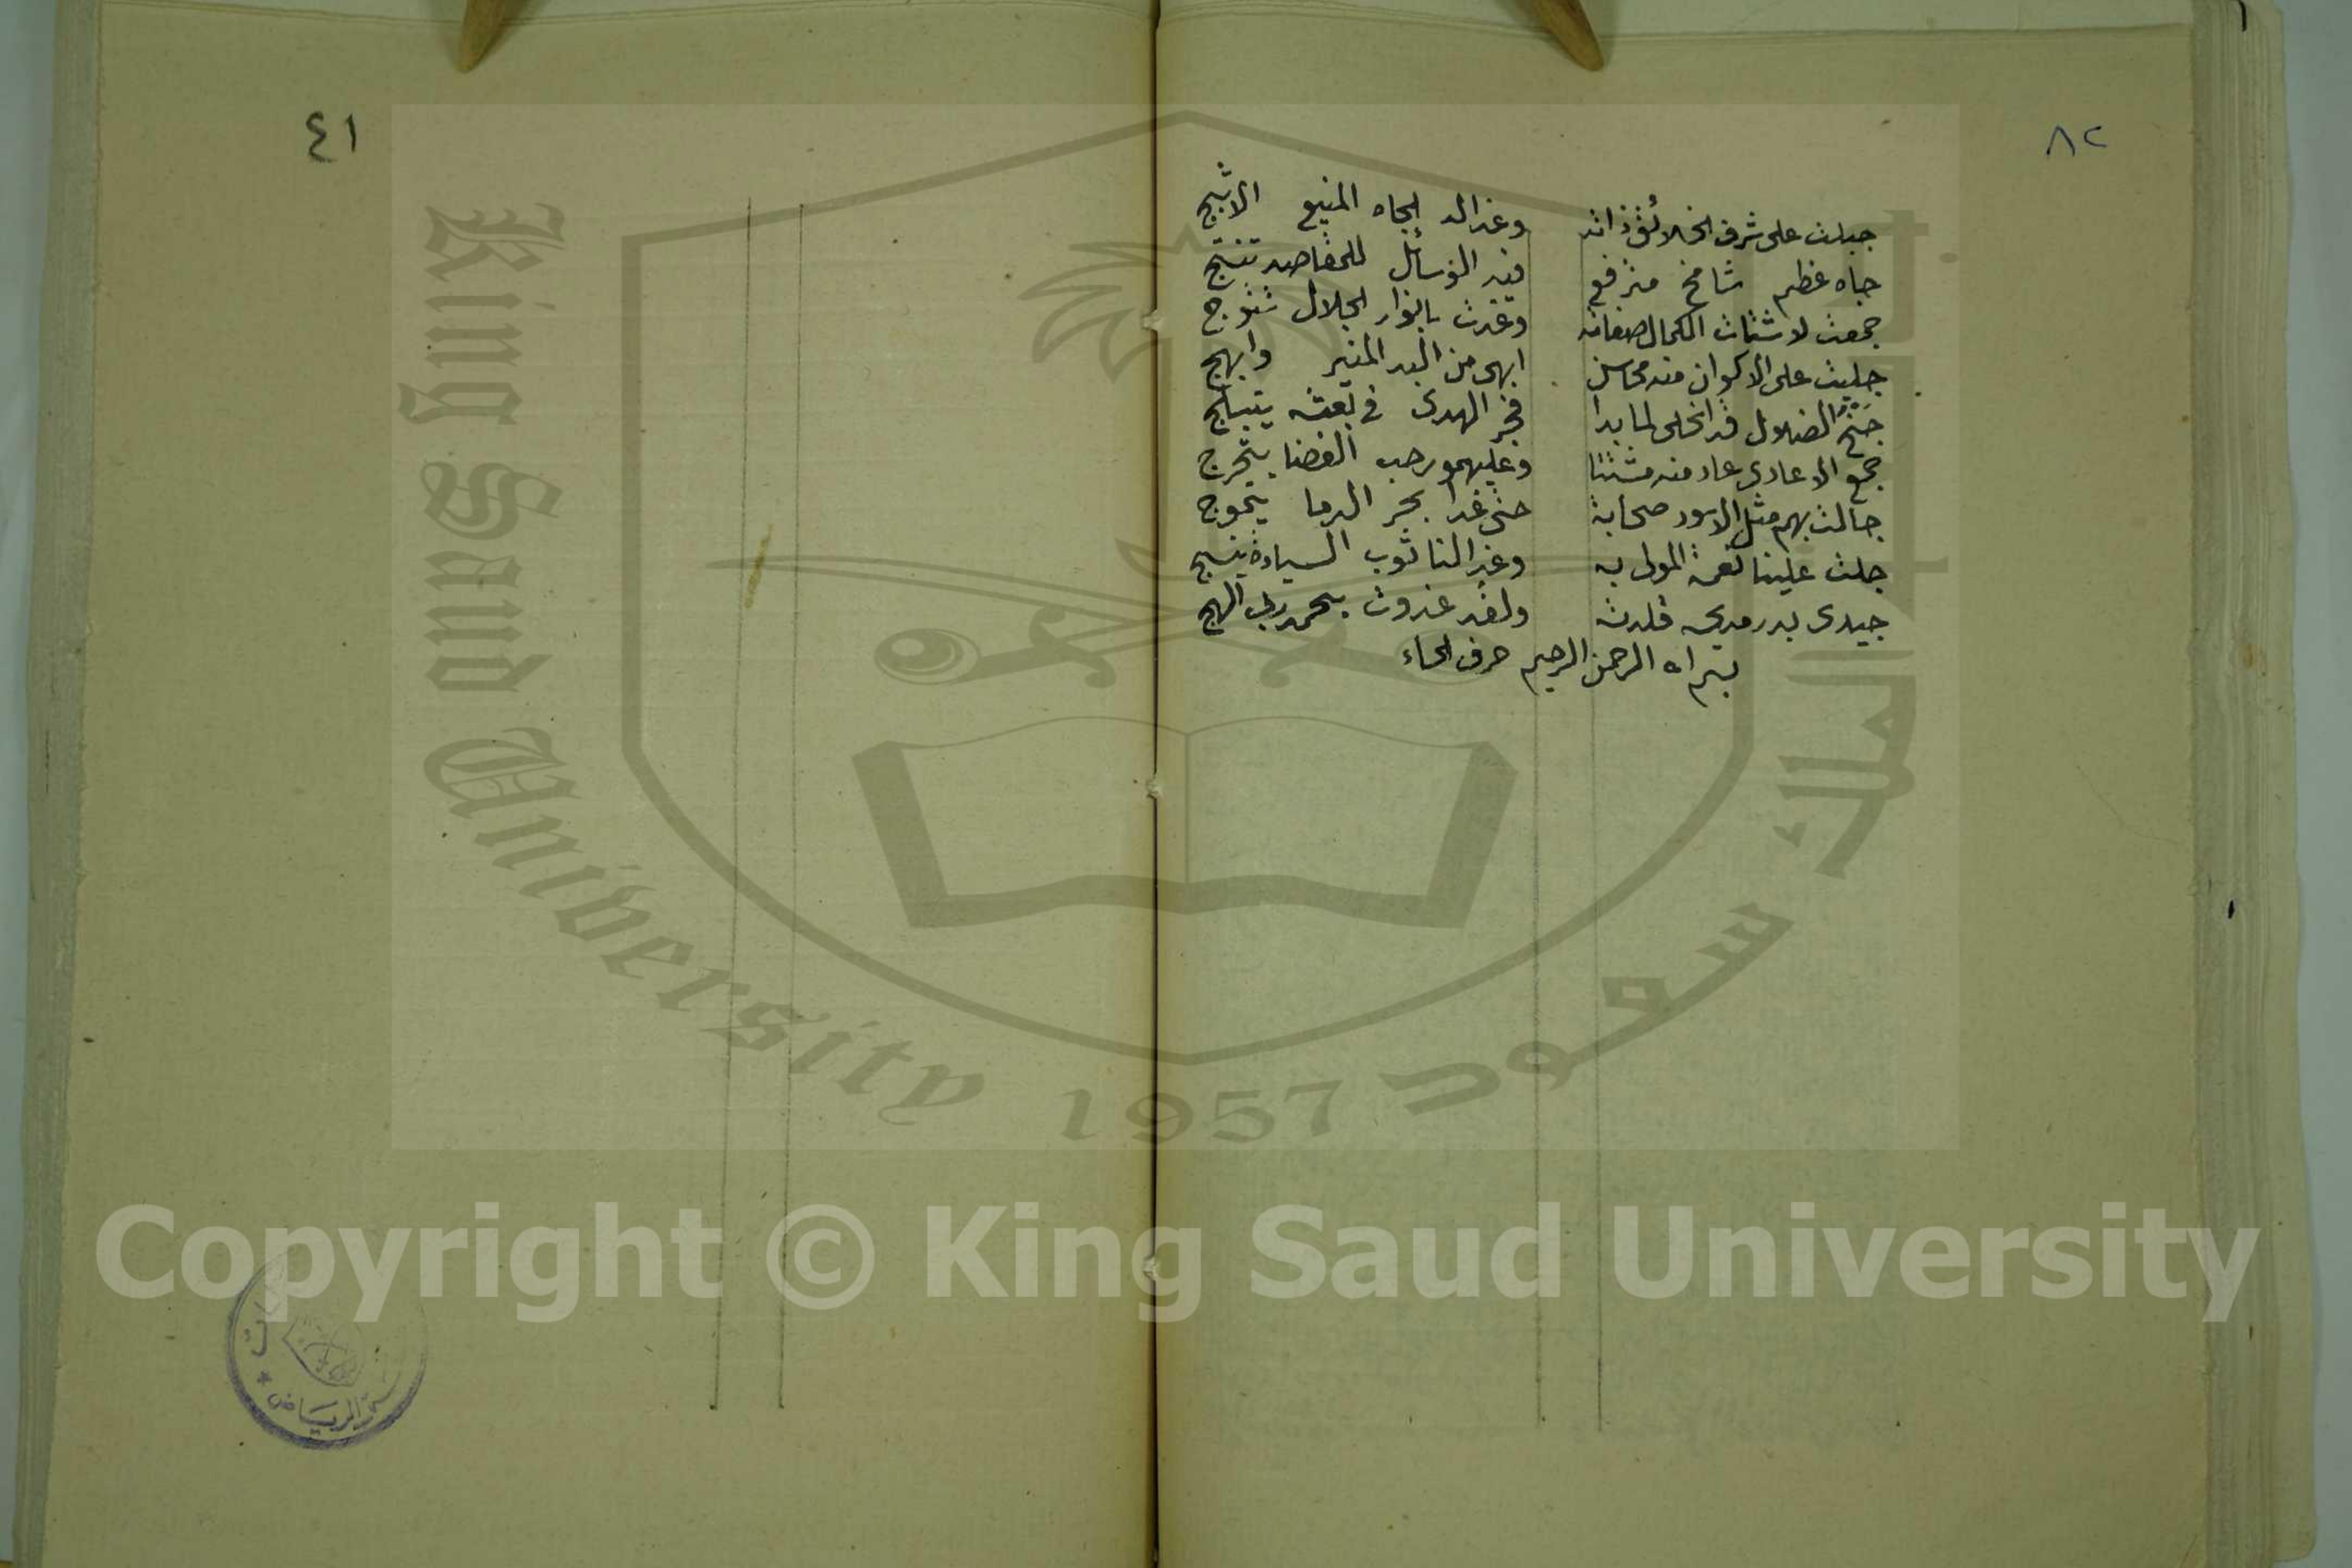 ٨٢
جبلت على شرف الخلائق ذاته وغدا له الجاه المنيع الاثبج
جاه عظيم شامخ مترفع فيه الوسائل للمقاصد تنتج
جمعت لاشتات الكمال صفاته وغدت بانوار الجلال تتوج
جليت على الاكوان منه محاسن ابهى من البدر المنير وابهج
جنح الضلال قد انجلى لما بدا فجر الهدى في بعثه يتبلج
جمع الاعادى عاد منه مشتتا وعليهمو رحب الفضا يتحرج
جالت بهم مثل الاسود صحابة حتى غدا بحر الدما يتموج
جلت علينا نعمة المولى به وغدا لنا ثوب السيادة ينسج
جيدى بدر مديحه قلدته ولقد غدوت بحمد ربى الهج
بسم الله الرحمن الرحيم حرف الحاء
٤١
الرياض
King Saud University 1957
الملك سعود
Copyright © King Saud University